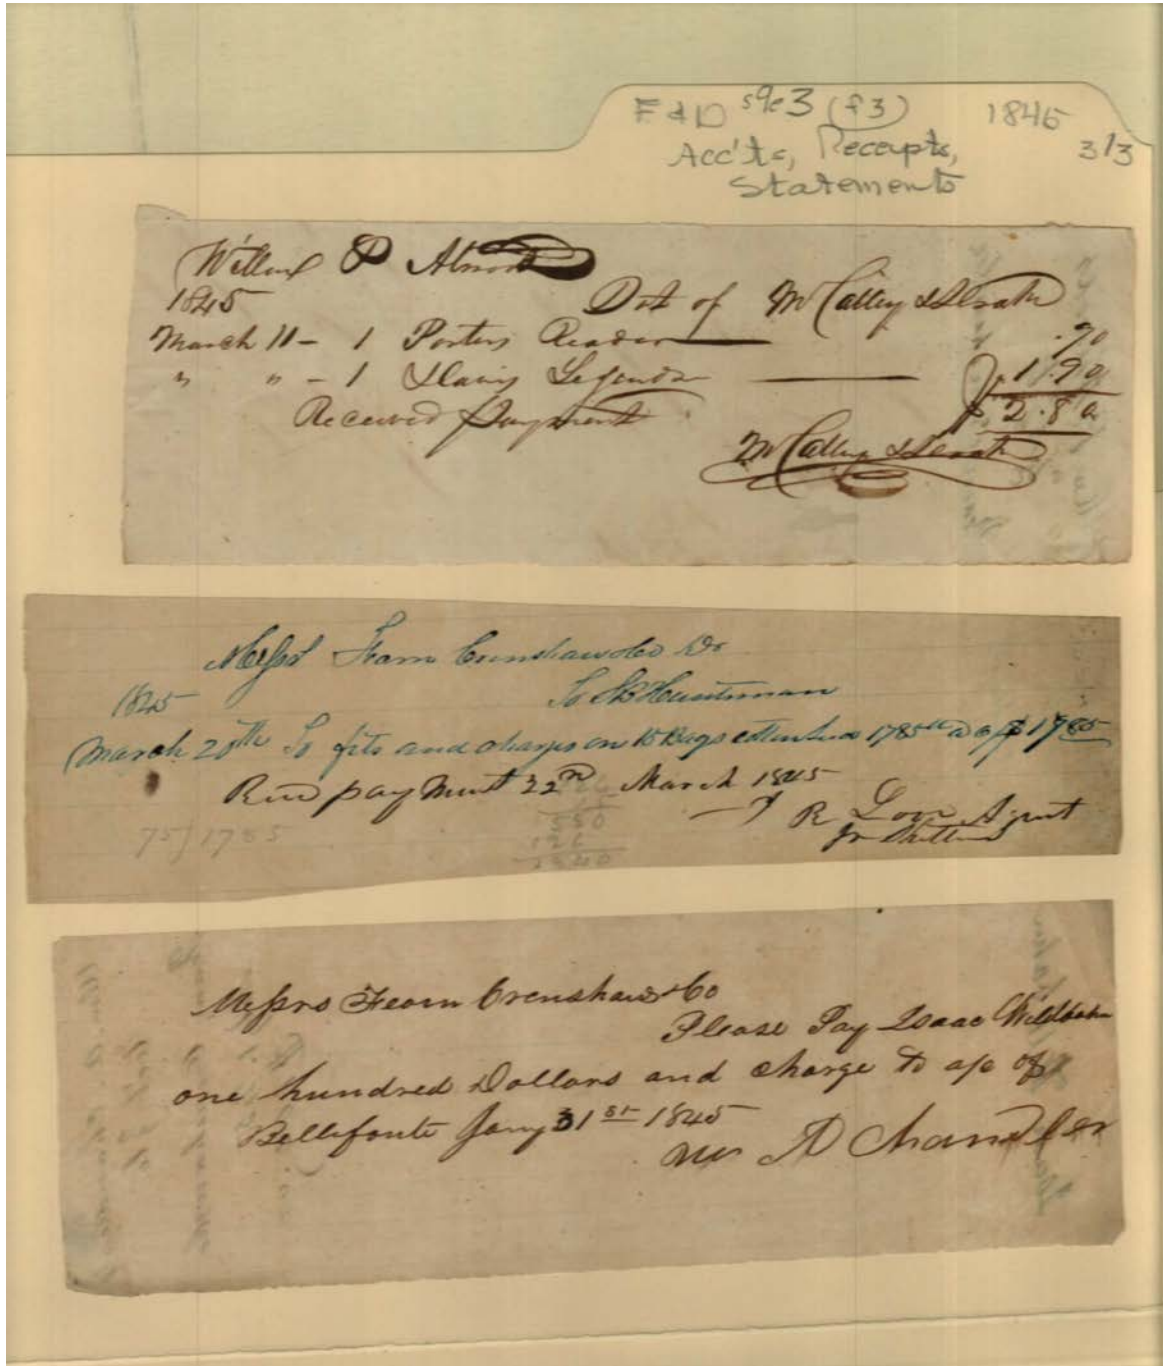 F & D s9e3 (f3) 1845
Acc'ts, Receipts, 3/3
Statements
P
1845 Dr of McCalley &
March 11 - 1 Porters Reader .90
" " - 1 Legends 1.90
Received payment $2.80
McCalley &
Messrs Fearn Crenshaw & Co Dr
1845 To Huntsman
March 20th To frts and charges on 15 Bags 1785 $17 85
Recd payment 22nd March 1845
R Love Agent
75)1785
Messrs Fearn Crenshaw & Co
Please Pay Isaac Wildbahn
one hundred Dollars and charge to a/c of
Bellefonte Jany 31st 1845
Chandler